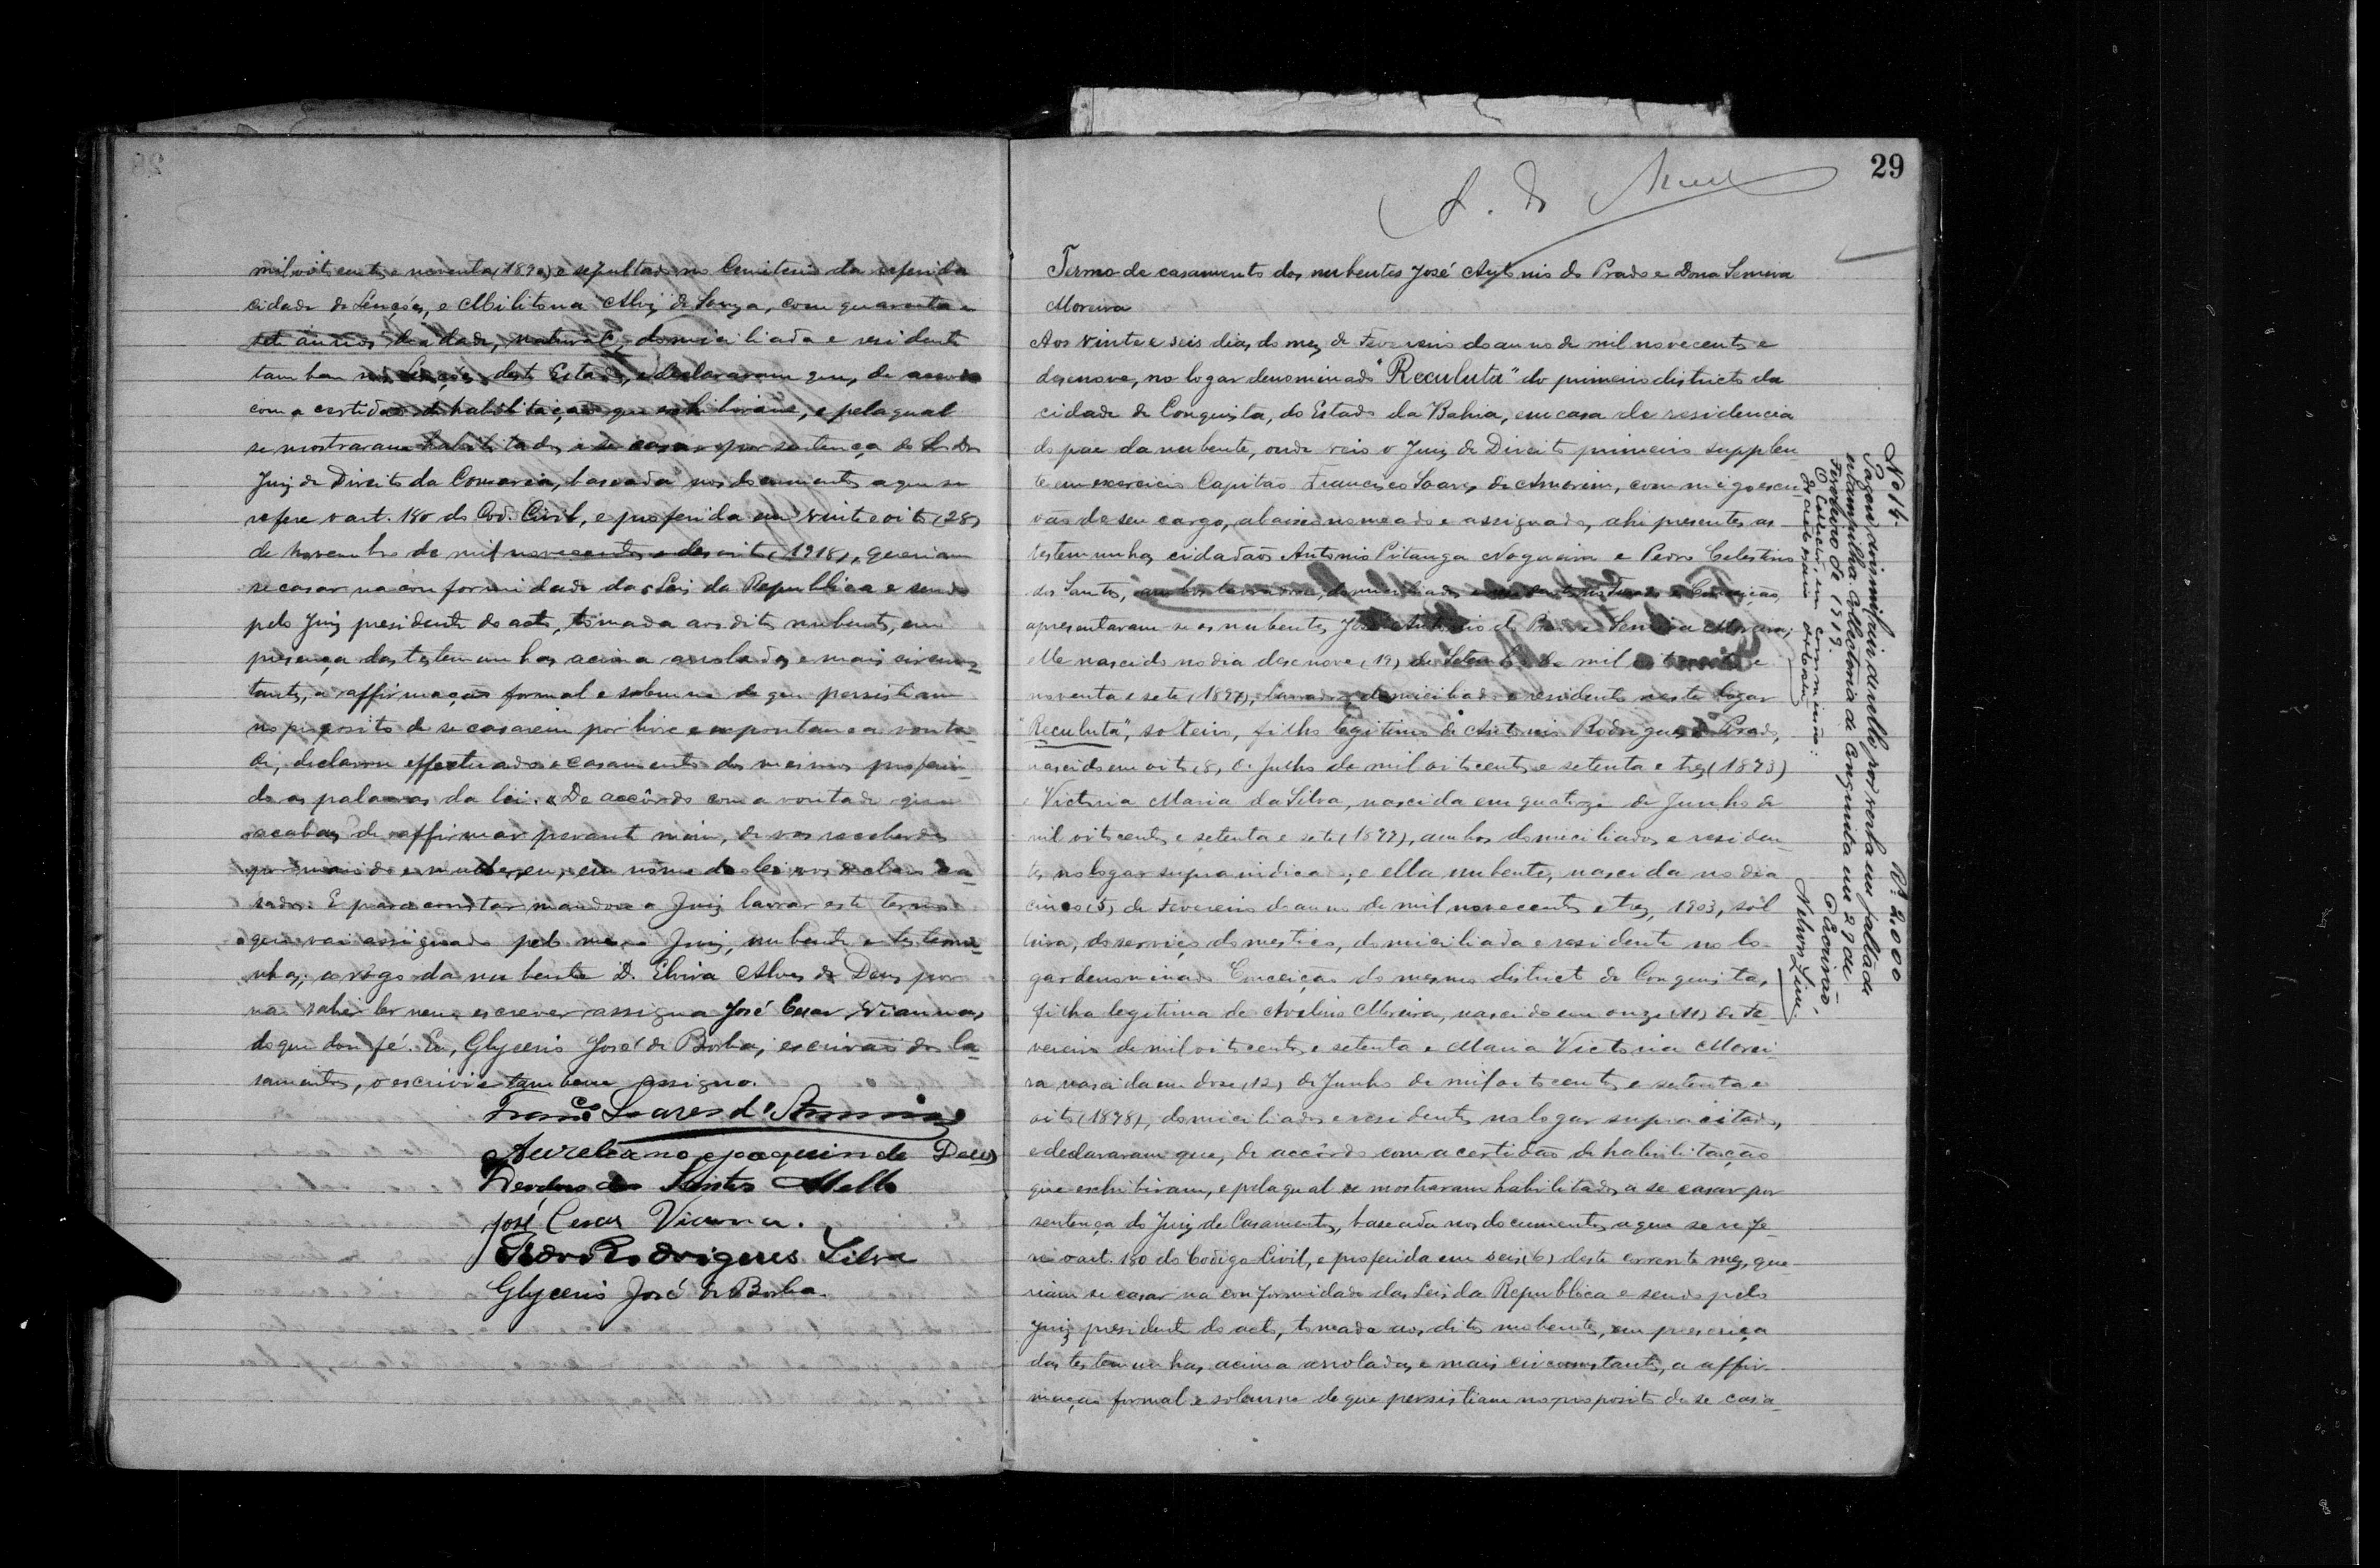 mil oito centos e noventa (1890) e sepultado no Cemiterio da referida
cidade de Lençóes, e Militona Alves de Souza, com quarenta e
sete annos de idade, natural, domiciliada e residente
tambem nos Lençóes, deste Estado, e declararam que, de accordo
com a certidão de habilitação que exhibiram, e pela qual
se mostraram habilitados a se casar por sentença do Sr. Dr.
Juiz de Direito da Comarca, baseada nos documentos a que se
refere o art. 180 do Cod. Civil, e proferida em vinte e oito (28)
de novembro de mil novecentos e desoito (1918), queriam
se casar na conformidade das Leis da Republica e sendo
pelo Juiz presidente do acto, tomada aos ditos nubentes, em
presença das testemunhas acima arroladas e mais circums-
tantes, a affirmação formal e solemne de que persistiam
no proposito de se casarem por livre e espontanea vonta-
de, declarou effectuado o casamento dos mesmos proferin-
do as palavras da lei. "De accôrdo com a vontade que
acabaes de affirmar perante mim, de vos receberdes
por marido e mulher, eu, em nome da lei vos declaro ca-
sados. E para constar mandou o Juiz lavrar este termo
que vai assignado pelo mesmo Juiz, nubente e testemu-
nhas; a rogo da nubente D. Elvira Alves de Deus por
não saber ler nem escrever assigna José Cesar Vianna,
do que dou fé. Eu, Glycerio José de Borba, escrivão dos Ca-
samentos, o escrivi e tambem assigno.
Franco. Soares d'Amorim
Aureliano Joaquim de Deus
Deodoro dos Santos Mello
José Cesar Vianna.
Pedro Rodrigues Silva
Glycerio José de Borba.
29
Termo de casamento dos nubentes José Antonio do Prado e Dona
Moreira
Aos vinte e seis dias do mez de Fevereiro do anno de mil novecentos e
desenove, no logar denominado "Reculuta" do primeiro districto da
cidade de Conquista, do Estado da Bahia, em casa de residencia
do pae da nubente, onde veio o Juiz de Direito primeiro supplen-
te em exercicio Capitão Francisco Soares de Amorim, commigo escri-
vão de seu cargo, abaixo nomeado e assignado, ahi presentes as
testemunhas cidadãos Antonio Pitanga Nogueira e Pedro Celestino
dos Santos, ambos lavradores, domiciliados e Conceição,
apresentaram-se os nubentes José Antonio do Prado e Moreira;
elle nascido no dia desenove (19) de Setembro de mil oito centos e
noventa e sete (1897), lavrador, domiciliado e residente neste logar
"Reculuta", solteiro, filho legitimo de Antonio Rodrigues do Prado,
nascido em oito (8) de Julho de mil oito centos e setenta e trez (1873)
e Victoria Maria da Silva, nascida em quatorze de Junho de
mil oito centos e setenta e sete (1877), ambos domiciliados e residen-
tes no logar supra indicado; e ella nubente, nascida no dia
cinco (5) de Fevereiro do anno de mil novecentos e trez, 1903, sol-
teira, do serviço domestico, domiciliada e residente no lo-
gar denominado Conceição do mesmo districto de Conquista,
filha legitima de Avelino Moreira, nascido em onze (11) de Fe-
vereiro de mil oito centos e setenta e Maria Victoria Morei-
ra nascida em dose (12) de Junho de mil oito centos e setenta e
oito (1878), domiciliados e residentes no logar supra citado,
e declararam que, de accôrdo com a certidão de habilitação
que exhibiram, e pela qual se mostraram habilitados a se casar por
sentença do Juiz de Casamentos, baseada nos documentos a que se refe-
re o art. 180 do Codigo Civil, e proferida em seis (6) deste corrente mez, que-
riam se casar na conformidade das Leis da Republica e sendo pelo
Juiz presidente do acto, tomada aos ditos nubentes, em presença
das testemunhas acima arroladas e mais circumstantes, a affir-
mação formal e solemne de que persistiam no proposito de se casa-
No 14. Rs 2.000
Pagou dois mil reis de sello por verba em falta de
estampilha. Collectoria de Conquista em 27 de
Fevereiro de 1919.
O Collector, em commissão: O Escrivão,
Nelson Lima